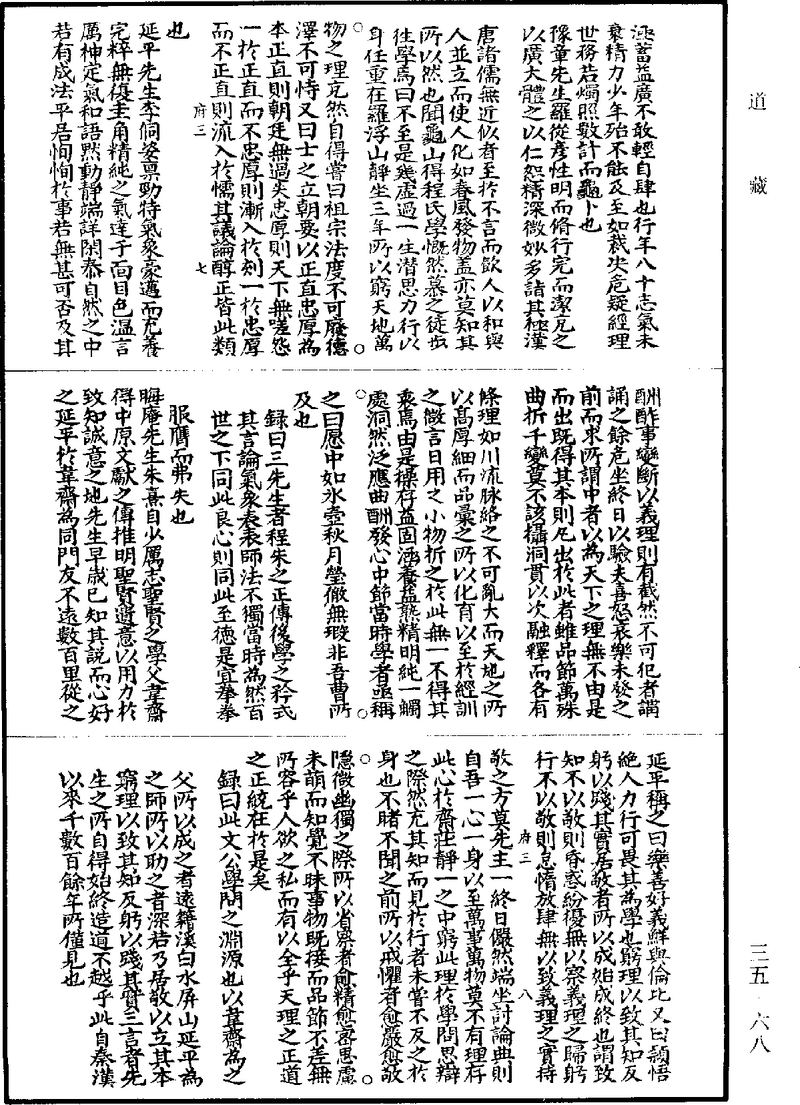 涵蓄益廣不敢輕自肆也行年八十志氣未
衰精力少年殆不能及至如裁決危疑經理
世務若燭照數計而龜卜也
豫章先生羅從彥性明而脩行完而潔充之
以廣大體之以仁恕精深微妙多詣其極漢
唐諸儒無近似者至於不言而飲人以和與
人並立而使人化如春風發物蓋亦莫知其
所以然也聞龜山得程氏學慨然慕之徒步
往學焉曰不至是幾虛過一生潛思力行以
身任重在羅浮山靜坐三年所以窮天地萬
物之理充然自得嘗曰祖宗法度不可廢德
澤不可恃又曰士之立朝要以正直忠厚為
本正直則朝廷無過失忠厚則天下無嗟怨
一於正直而不忠厚則漸入於刻一於忠厚
而不正直則流入於懦其議論醇正皆此類
府三 七
也
延平先生李侗姿稟勁特氣象豪邁而充養
完粹無復圭角精純之氣達于面目色溫言
厲神定氣和語默動靜端詳閑泰自然之中
若有成法平居恂恂於事若無甚可否及其
酬酢事變斷以義理則有截然不可犯者講
誦之餘危坐終日以驗夫喜怒哀樂未發之
前而求所謂中者以為天下之理無不由是
而出既得其本則凡出於此者雖品節萬殊
曲折千變莫不該攝洞貫以次融釋而各有
條理如川流脉絡之不可亂大而天地之所
以高厚細而品彙之所以化育以至於經訓
之微言日用之小物折之於此無一不得其
衷焉由是操存益固涵養益熟精明純一觸
處洞然泛應曲酬發必中節當時學者亟稱
之曰愿中如冰壺秋月瑩徹無瑕非吾曹所
及也
錄曰三先生者程朱之正傳後學之矜式
其言論氣象表表師法不獨當時為然百
世之下同此良心則同此至德是宜拳拳
服膺而弗失也
晦庵先生朱熹自少厲志聖賢之學父韋齋
得中原文獻之傳推明聖賢遺意以用力於
致知誠意之地先生早歲已知其說而心好
之延平於韋齋為同門友不遠數百里從之
延平稱之曰樂善好義鮮與倫比又曰穎悟
絕人力行可畏其為學也窮理以致其知反
躬以踐其實居敬者所以成始成終也謂致
知不以敬則昏惑紛擾無以察義理之歸躬
行不以敬則怠惰放肆無以致義理之實持
府三 八
敬之方莫先主一終日儼然端坐討論典則
自吾一心一身以至萬事萬物莫不有理存
此心於齋莊靜一之中窮此理於學問思辯
之際然充其知而見於行者未嘗不反之於
身也不睹不聞之前所以戒懼者愈嚴愈敬
隱微幽獨之際所以省察者愈精愈密思慮
未萌而知覺不昧事物既接而品節不差無
所容乎人欲之私而有以全乎天理之正道
之正統在於是矣
錄曰此文公學問之淵源也以韋齋為之
父所以成之者遠籍溪白水屏山延平為
之師所以助之者深若乃居敬以立其本
窮理以致其知反躬以踐其實三言者先
生之所自得始終造道不越乎此自秦漢
以來千數百餘年所僅見也
道藏
三五-六八